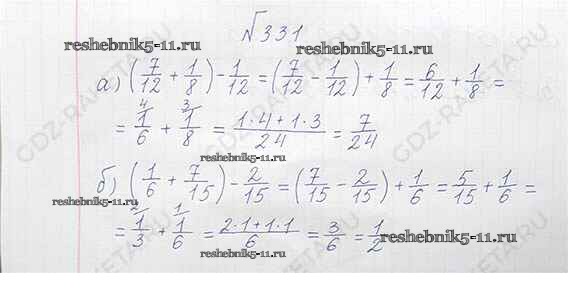 √331
reshebnik5-11.ru reshebnik5-11.ru
а) (7/12 + 1/8) - 1/12 = (7/12 - 1/12) + 1/8 = 6/12 + 1/8 =
= 1/6 ⁴ + 1/8 ³ = 1·4 + 1·3 / 24 = 7/24
reshebnik5-11.ru
б) (1/6 + 7/15) - 2/15 = (7/15 - 2/15) + 1/6 = 5/15 + 1/6 =
reshebnik5-11.ru
= 1/3 ² + 1/6 ¹ = 2·1 + 1·1 / 6 = 3/6 = 1/2
reshebnik5-11.ru reshebnik5-11.ru
GDZ-RAKETA.RU